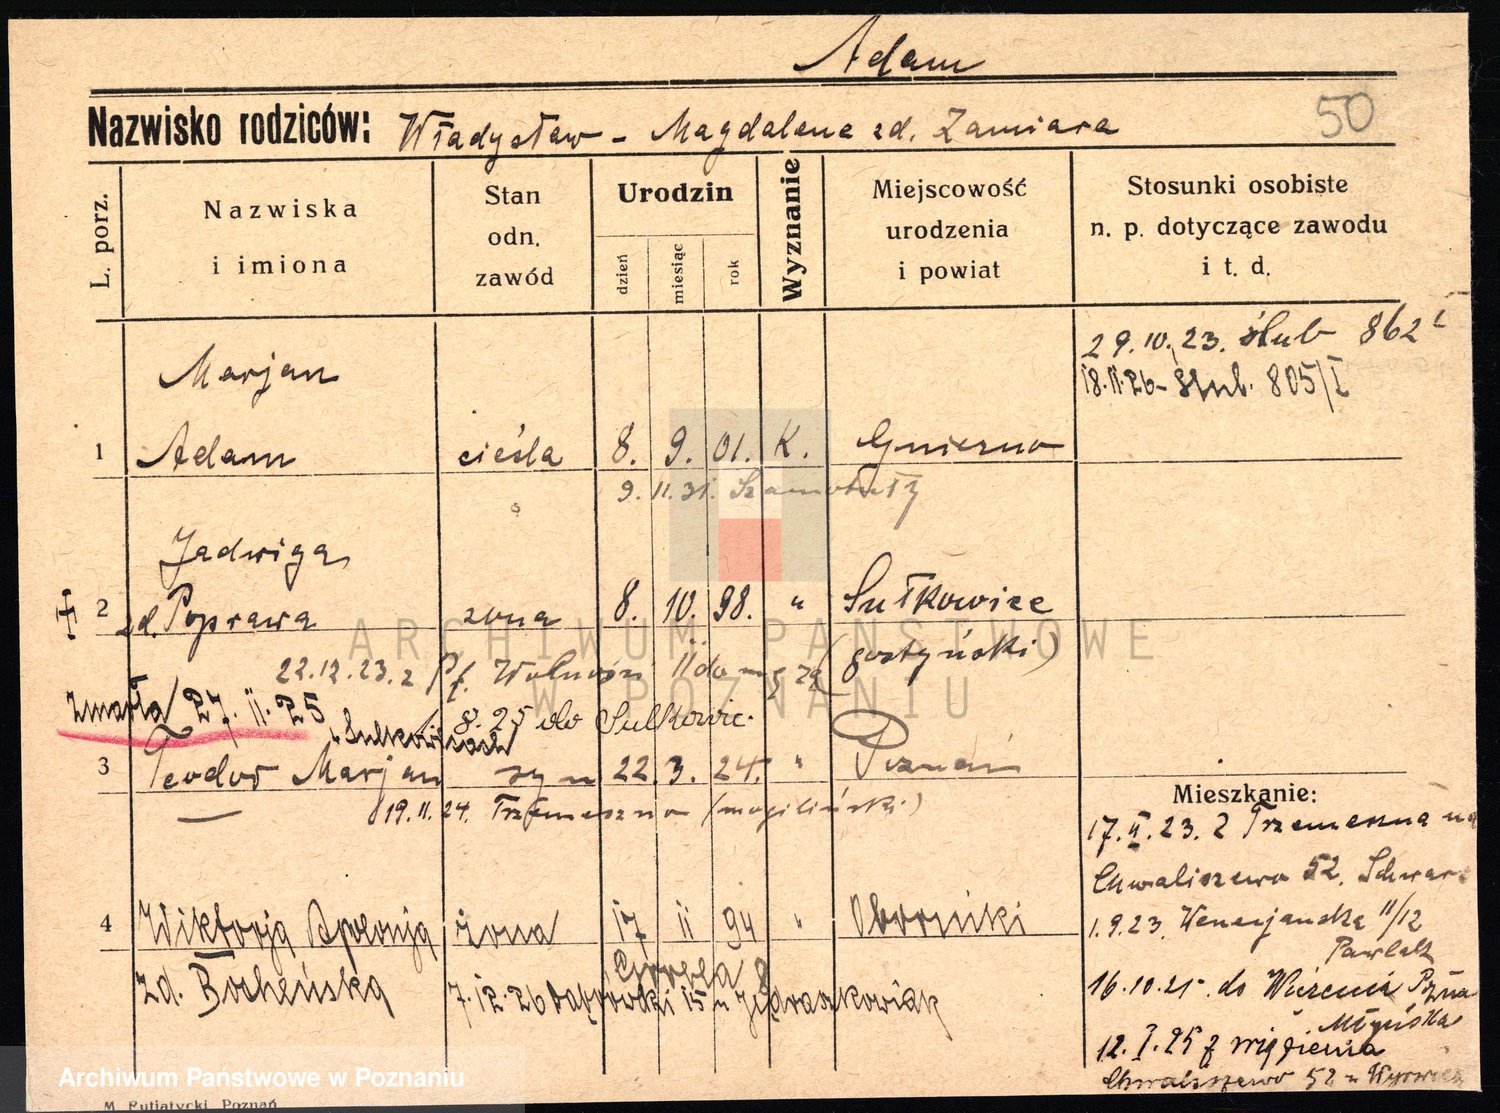 Adam
50
Nazwisko rodziców: Władysław - Magdalena zd. Zamiara
L. porz.
Nazwiska
i imiona
Stan
odn.
zawód
Urodzin
dzień
miesiąc
rok
Wyznanie
Miejscowość
urodzenia
i powiat
Stosunki osobiste
n. p. dotyczące zawodu
i t. d.
29.10.23. ślub 862
18.II.26 - ślub. 805/I
Marjan
1 Adam cieśla 8. 9. 01. K. Gniezno
9.11.31. Szamotuły
Jadwiga
2 zd. Poprawa żona 8. 10. 98. " Sułkowice
(gostyński)
22.12.23. z Pf.
zmarła 27.II.25 w Sulkowicach
8.25 do Sulkowic.
3 Teodor Marjan syn 22. 3. 24. " Poznań
19.11.24. Trzemeszno (mogiliński)
Mieszkanie:
17.II.23. z Trzemeszna na
Chwaliszewo 52. Schwarz
1.9.23. Wenecjanska 11/12
Pawlak
4 Wiktorja Apolonja żona 17 II 94 " Oborniki
zd. Bocheńska
Górna 8
7.12.26 Dąbrowki 15 u Jędraszkowiak
do Więzienia Pozna
Młyńska
12.I.25 z więzienia
Chwaliszewo 52 u
ARCHIWUM PAŃSTWOWE
W POZNANIU
Archiwum Państwowe w Poznaniu
M. Putiatycki, Poznań